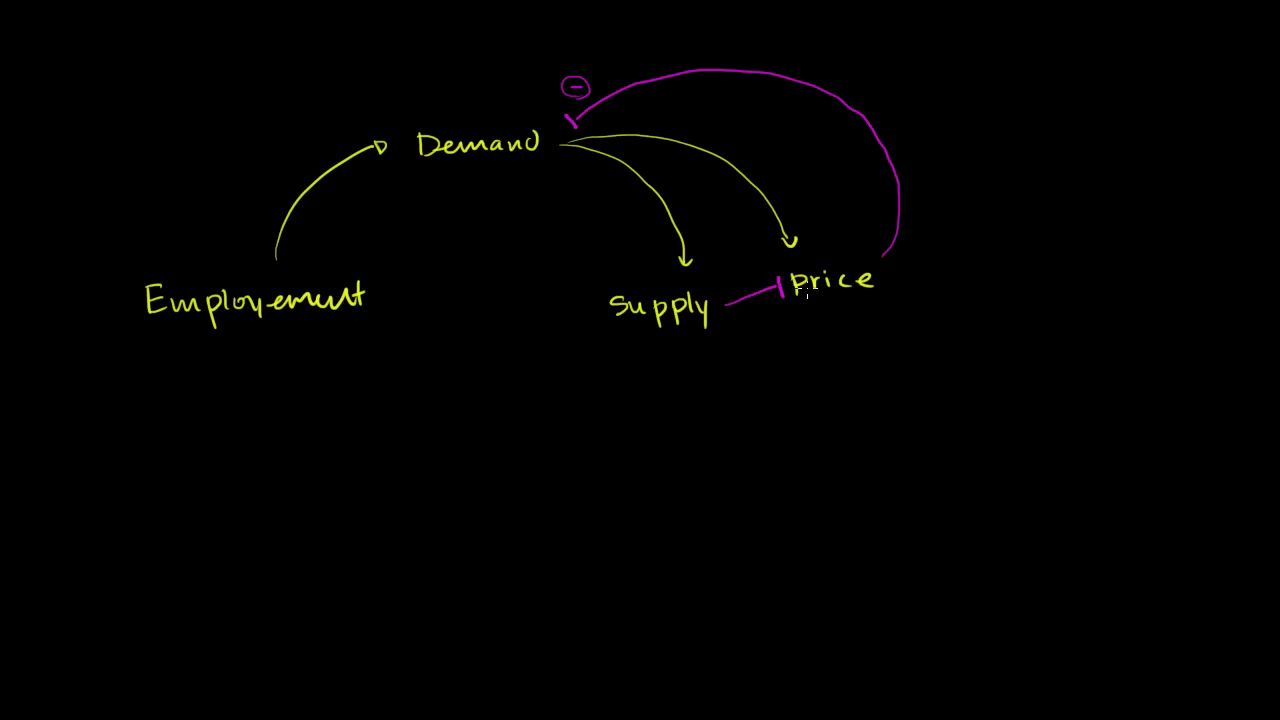 ⊖
Demand
Employement
Supply
price